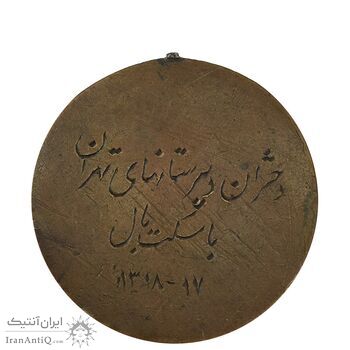 دختران دبیرستانهای تهران
باسکت بال
۱۳۱۸-۱۷
ایران آنتیک
IranAntiQ.com